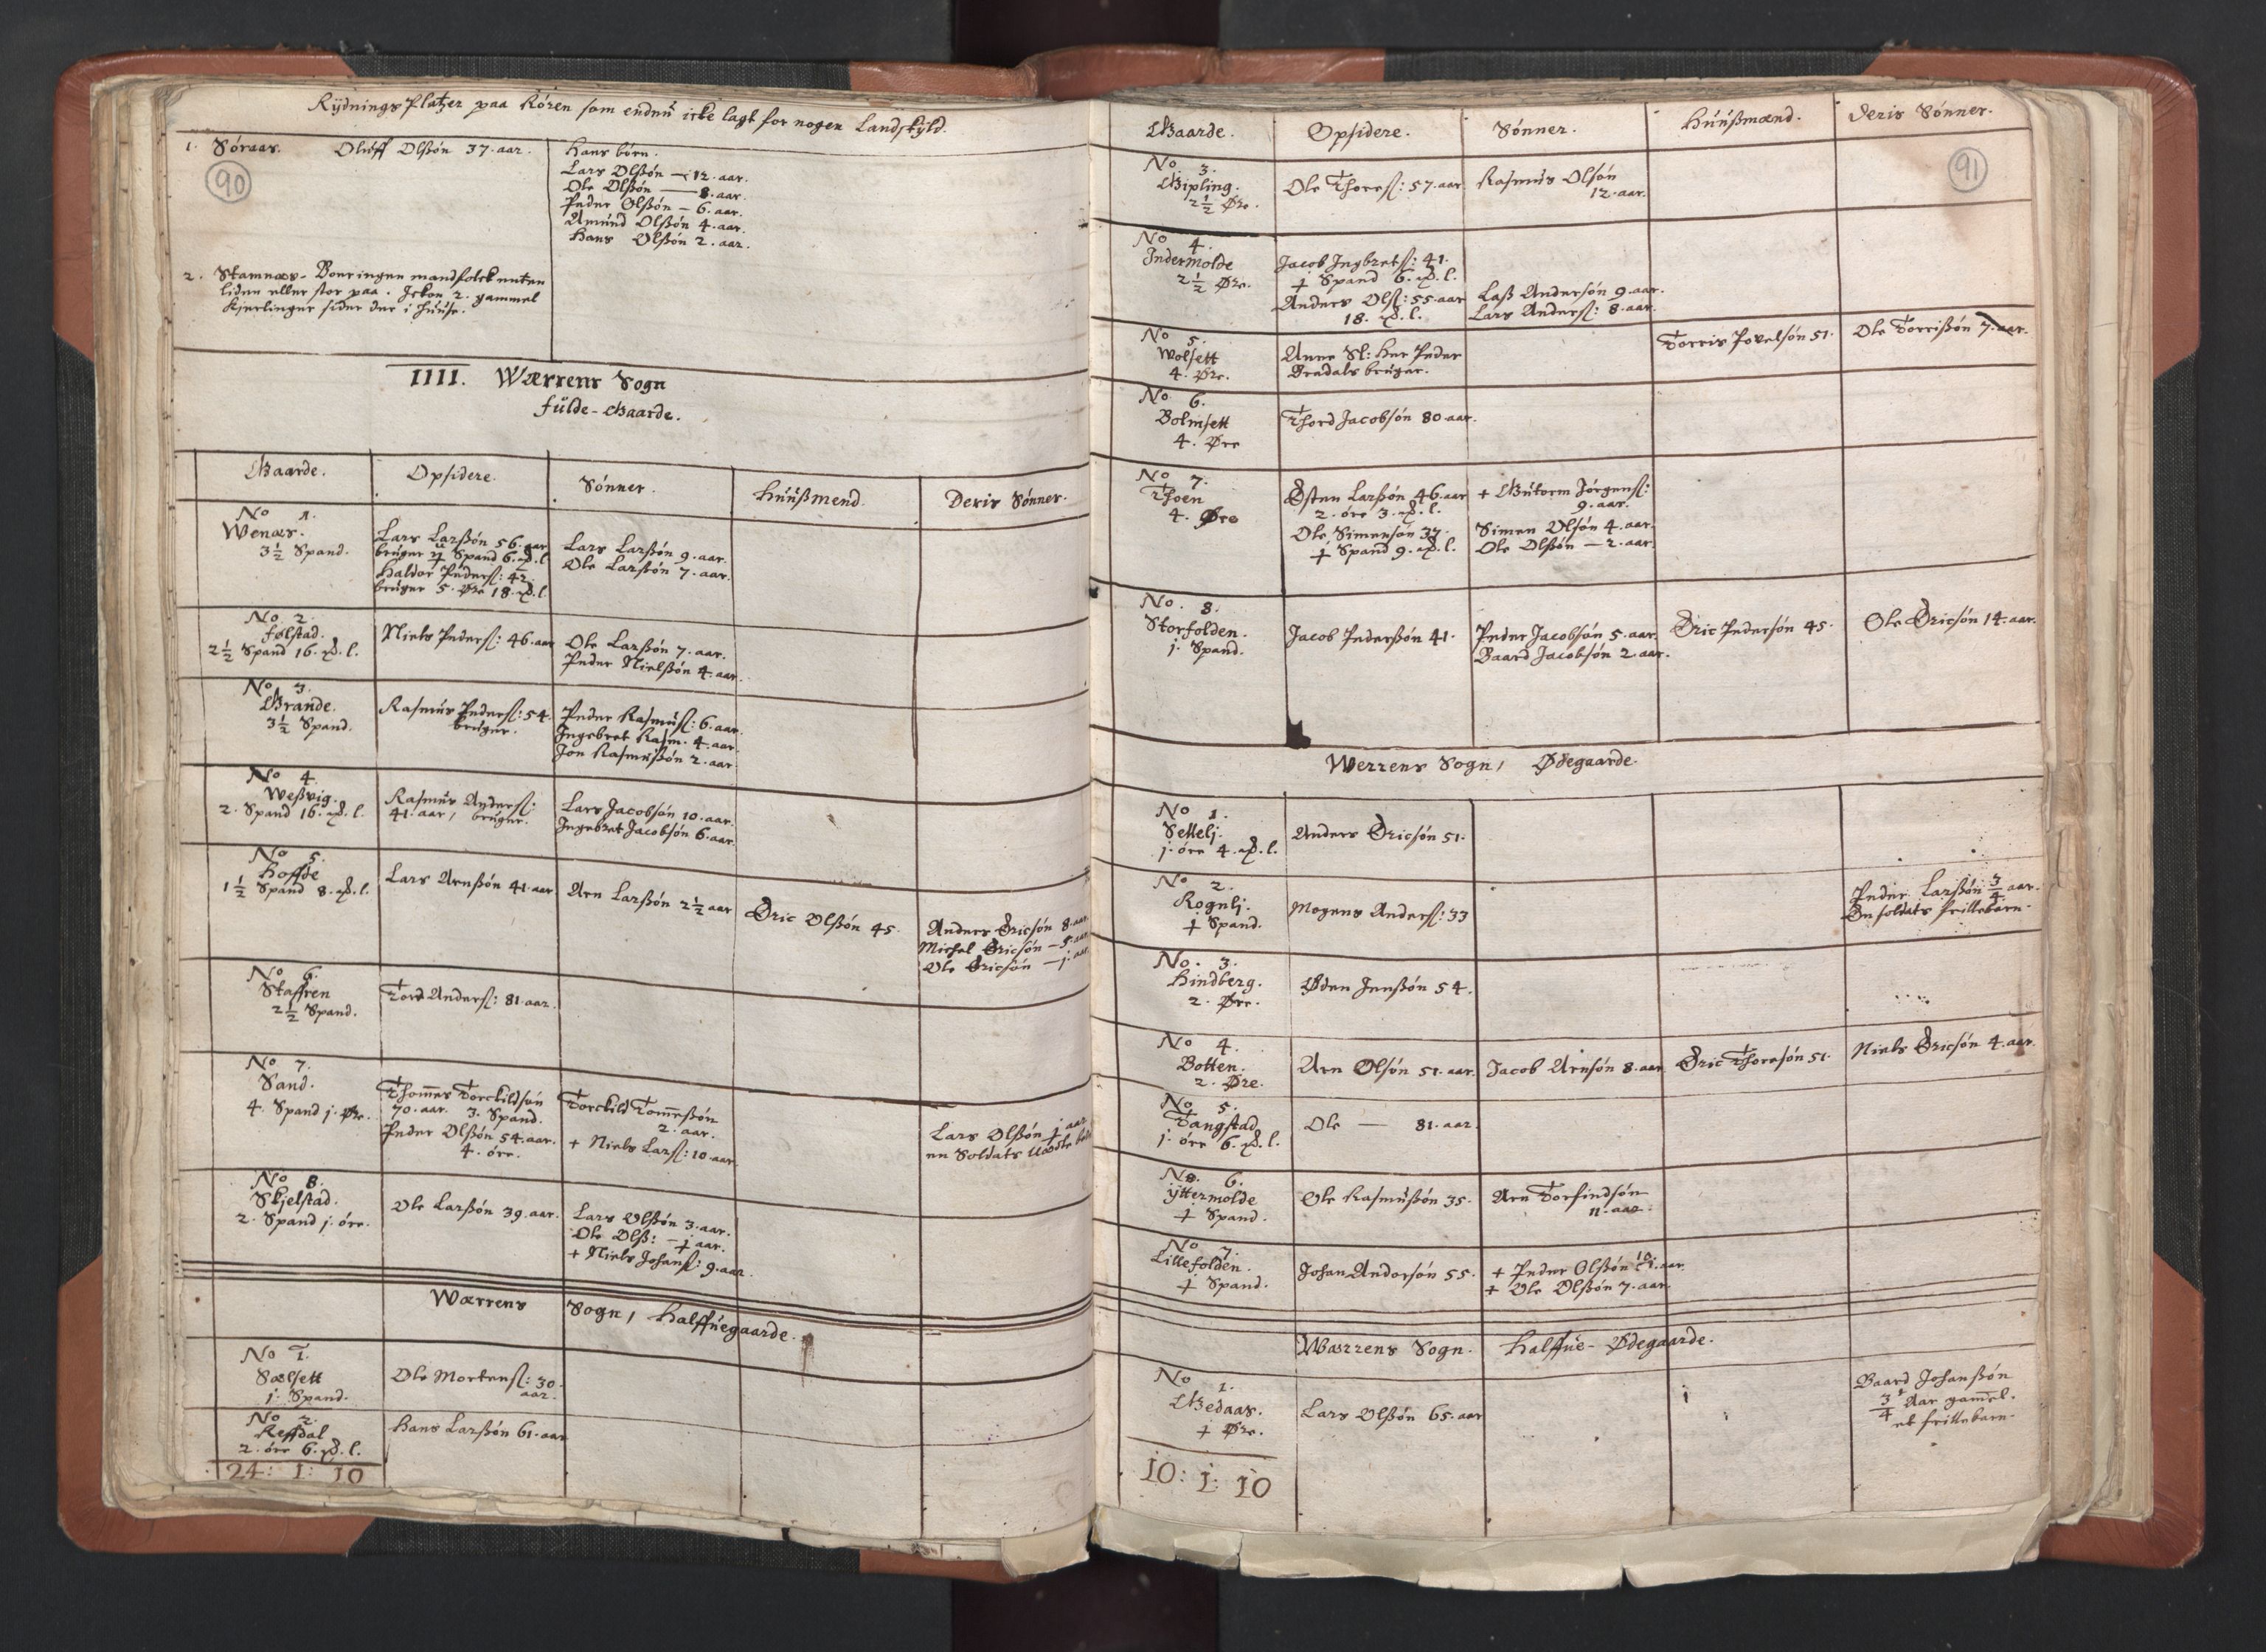 Rÿdnings Platzer paa Rören som endnü icke lagt for nogen Landskÿld.
1. Söraas. Olüff Olßön 37. aar.
90
Hans börn.
Lars Olßön — 12. aar.
Ole Olßön — 8. aar.
Peder Olßön — 6. aar.
Amünd Olßön 4. aar.
Hans Olßön 2. aar.
2. Stamnæs. Boer ingen mandfolck enten
liden eller stor paa. Ickon 2. gammel
Kjerlinger sider der i huuse.
IIII. Wærrens Sogn
fülde-Gaarde.
Gaarde. Opsidere. Sönner. Huüßmend. Deris Sönner.
No 1.
Wenæs.
3 1/2 Spand.
Lars Larßön 56. aar
brüger Spand 6. l.
Haldor Peders: 42.
brüger 5. Øre 18. l.
Lars Larßön 9. aar.
Ole Larßön 7. aar.
No. 2.
følstad.
2 1/2 Spand 16. l.
Niels Peders: 46. aar
Ole Larßön 7. aar.
Peder Nielßön 4. aar.
No 3.
Grande.
3 1/2 Spand.
Rasmüs Peders: 54.
brüger.
Peder Rasmüs: 6. aar.
Ingebret Rasm. 4. aar.
Jon Rasmüßön 2. aar.
No 4.
Weßvig.
2. Spand 16. l.
Rasmüs Anders:
41. aar, brüger.
Lars Jacobsön 10. aar.
Ingebret Jacobsön 6. aar.
No 5.
Hoffde
1 1/2 Spand 8. l.
Lars Arnßön 41. aar
Arn Larßön 2 1/2 aar
Eric Olßön 45.
Anders Ericsön 8. aar
Michel Ericsön — 5. aar
Ole Ericsön — j. aar
No 6.
Staffren
2 1/2 Spand.
Tord Anders: 81. aar.
No 7.
Sand.
4. Spand j. Øre.
Thom̃es Torckildsön
70. aar. 3. Spand.
Peder Olßön 54. aar.
4. öre.
Torckild Tom̃eßön
2. aar.
+ Niels Lars: 10. aar
Lars Olßön ½ aar
en Soldats
No 8.
Skjelstad.
2. Spand j. öre.
Ole Larßön 39. aar.
Lars Olßön 3. aar.
Ole Olß: — ½ aar.
+ Niels Johans: 9. aar.
Wærrens Sogn, Halffüegaarde.
No 1.
Sælsett
j. Spand.
Ole Mortens: 30.
aar.
No 2.
Reffdal
2. öre 6. l.
Hans Larßön 61. aar
24: 1: 10
Gaarde. Opsidere. Sönner. Huüßmænd. Deris Sönner.
91
No. 3.
Gipling.
2 1/2 Øre.
Ole Thores: 57. aar
Rasmüs Olsön
12. aar.
No 4.
Indermolde
2 1/2 Øre.
Jacob Ingbrets: 41.
½ Spand 6. l.
Anders Ols: 55. aar
18. l.
Laß Andersön 9. aar.
Lars Anders: 8. aar.
No 5.
Wolsett
4. Øre.
Anne Sl: Her Peder
Dradals brüger.
Torris Povelsön 51.
Ole Torrißön 7. aar.
No 6.
Bolmsett
4. Øre
Thord Jacobsön 80. aar.
No 7.
Thoen
4. Øre
Østen Larßön 46. aar
2. öre 3. l.
Ole Simensön 37.
½ Spand 9. l.
+ Gütorm Jörgens:
9. aar.
Simen Olsön 4. aar.
Ole Olßön — 2. aar.
No. 8.
Storfolden.
j. Spand.
Jacob Pederßön 41.
Peder Jacobsön 5. aar.
Baard Jacobsön 2. aar.
Eric Pedersön 45.
Ole Ericsön 14. aar.
Werrens Sogn, Ødegaarde.
No 1.
Settelj.
j. öre 4. l.
Anders Ericsön 51.
No 2.
Rognlj.
½ Spand.
Mogens Anders: 33
Peder Larßön 3/4 aar.
En soldats frillebarn.
No. 3.
Hindberg.
2. Øre.
Øden Jenßön 54.
No 4.
Botten.
2. Øre.
Arn Olsön 51. aar.
Jacob Arnsön 8. aar
Eric Thoresön 51.
Niels Ericsön 4. aar.
No 5.
Tangstad
j. öre 6. l.
Ole — 81. aar
No. 6.
Ÿttermolde
½ Spand.
Ole Rasmüßön 35.
Arn Torfindsön
11. aar.
No 7.
Lillefolden.
½ Spand.
Johan Andersön 55.
+ Peder Olßön 10. aar.
+ Ole Olßön 7. aar.
Wærrens Sogn. Halffüe-Ødegaarde.
No 1.
Gedaas.
½ Øre.
Lars Olßön 65. aar
Baard Johanßön
3/4 Aar gam̃el.
et frillebarn.
10: 1: 10